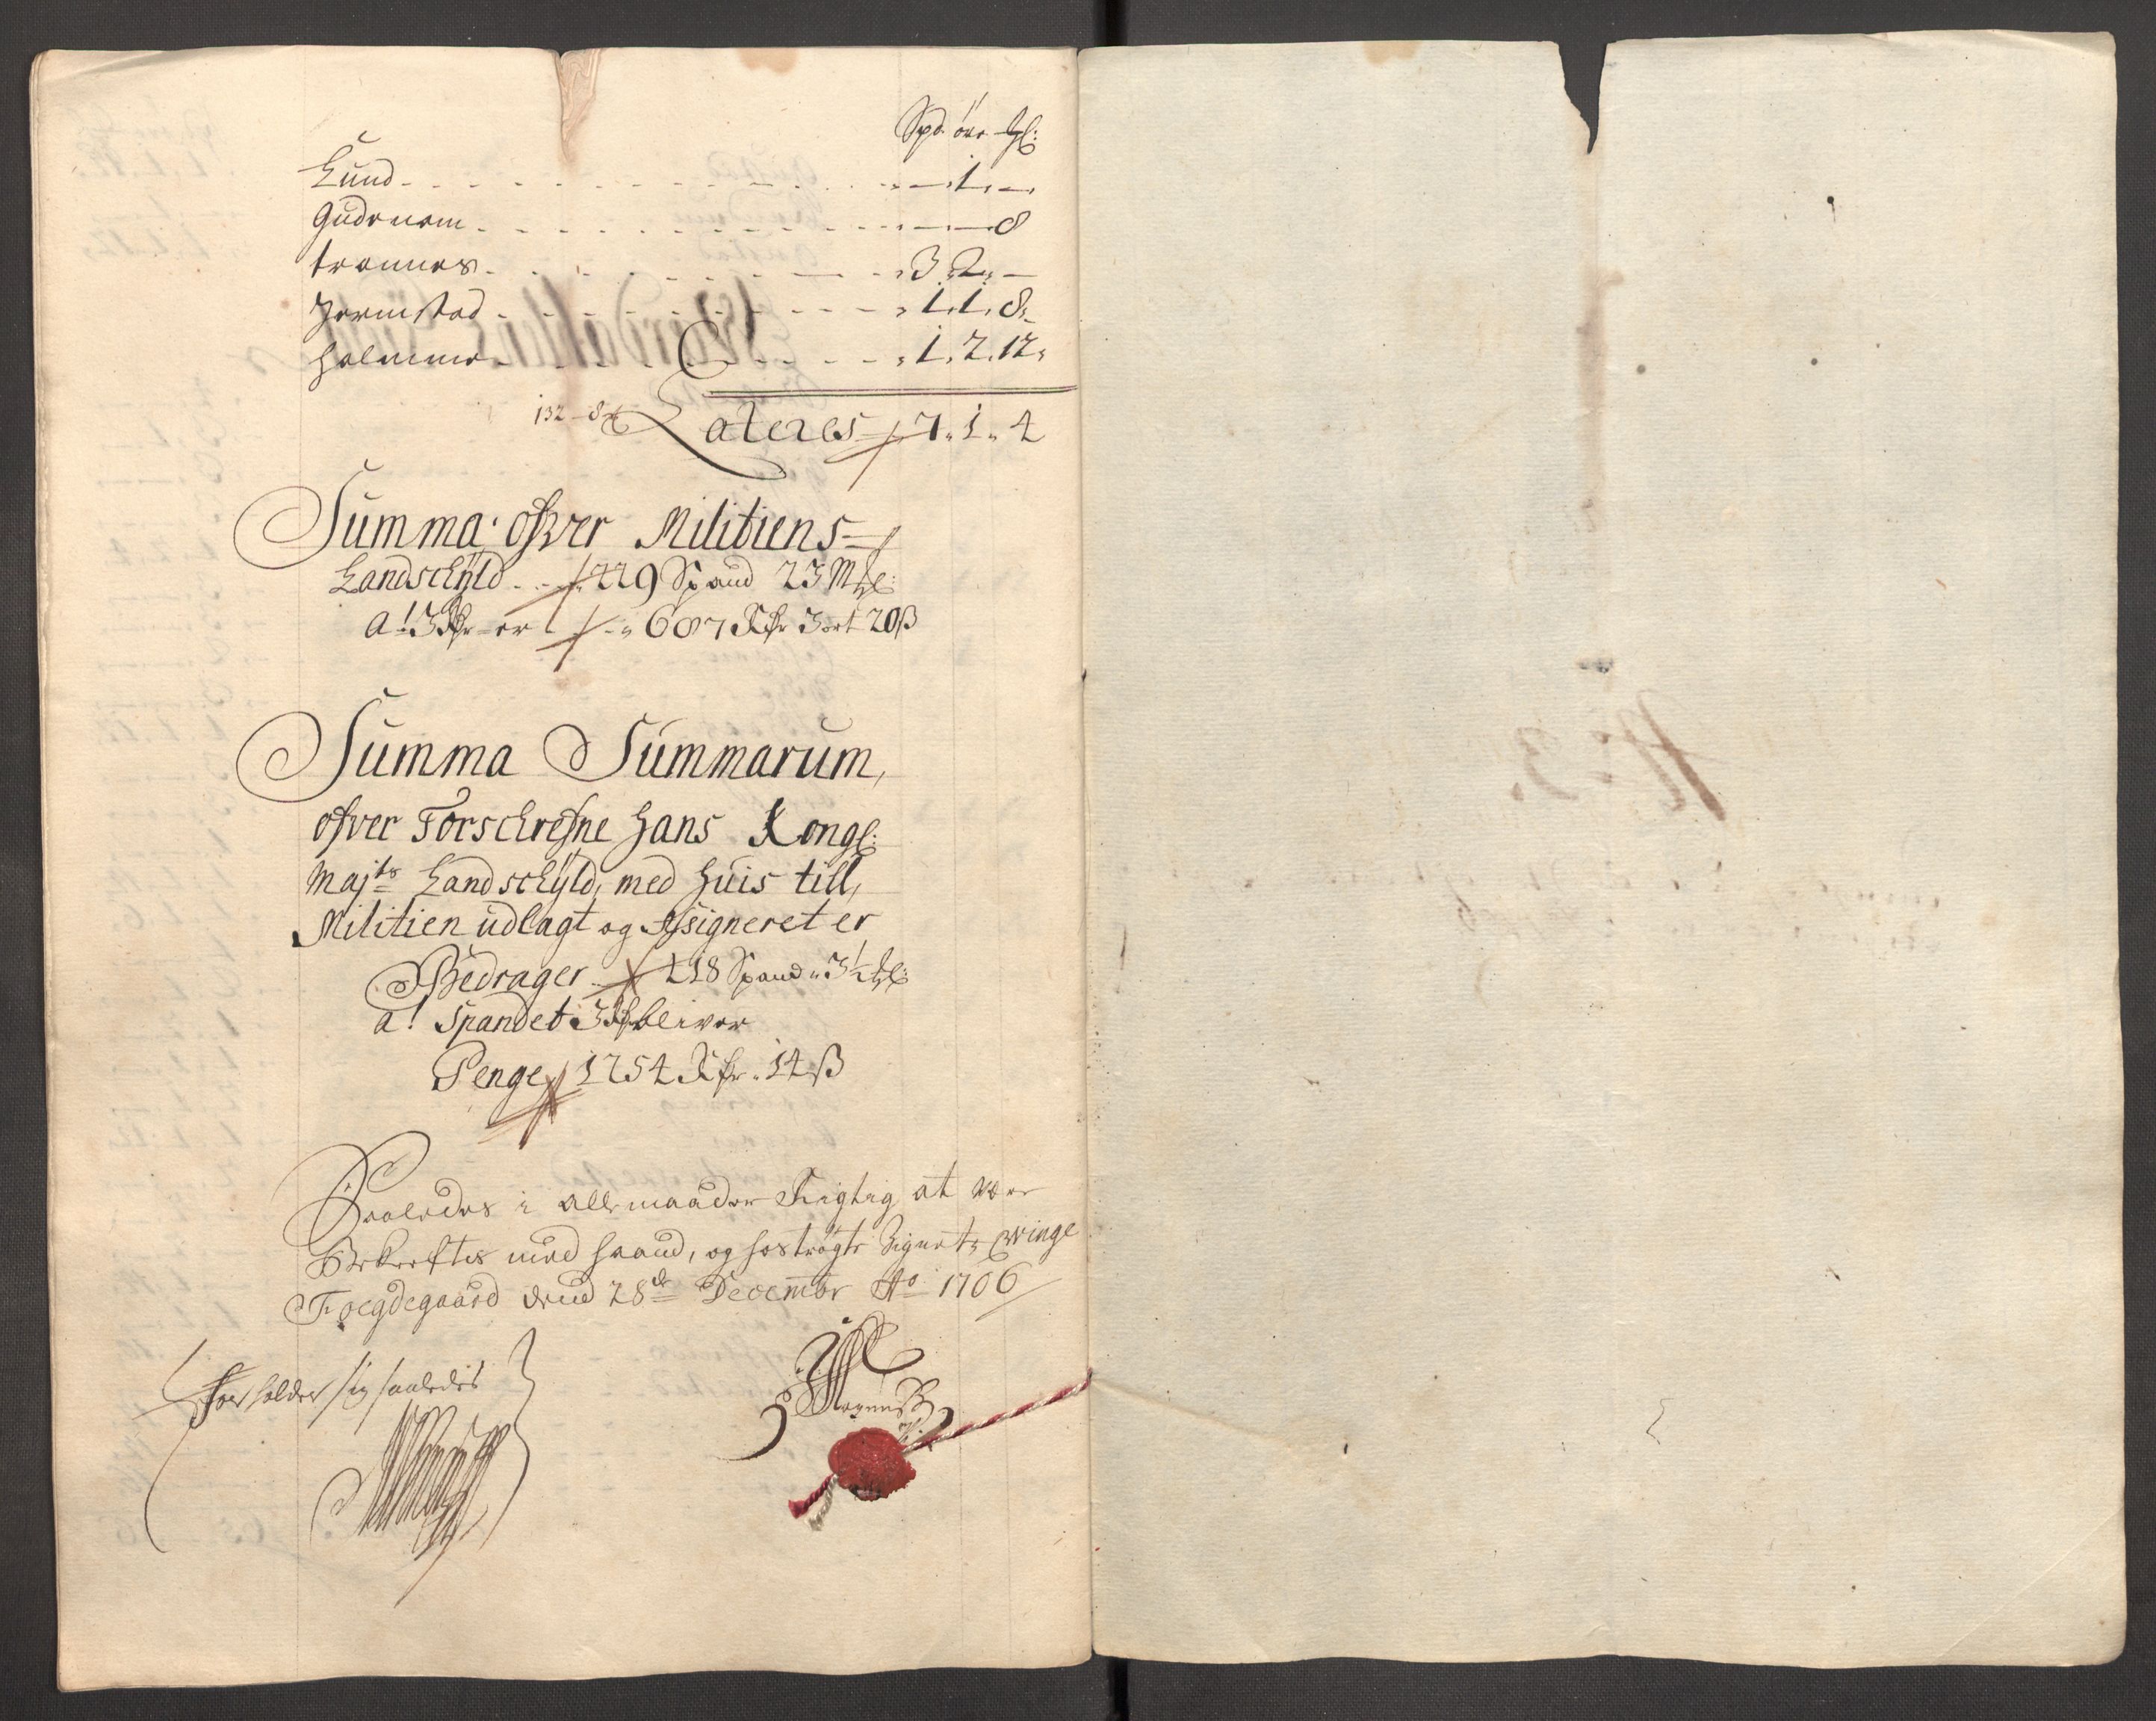 Spd: øre Mkl:
Lund - - - „ — 1. —
Gudenom - - - — — 8
tronnes - - - „ 3. 2. —
Jermstad - - - „ 1. 1. 8.
holmme - - - „ 1. 2. 12.
132 - 8
Lateres 7. 1. 4
Summa ofver Militiens
Landschÿld - - 229 Spand 23 Mkl:
a! 3 Rdr er - „ 687 Rdr 3 ort 20 ß
Summa Summarum,
ofver Forschrefne Hans Kongl:
Majts Landschÿld, med Huis till,
Militien udlagt og Assigneret er
Bedrager 418 Spand „ 3½ Mkl:
a! Spandet 3 Rdr bliver
Penge 1254 Rdr. 14 ß
Saaledes i alle maader Rigtig at være
Bekreftes med haand, og hoströgte Signet, Winge
Foegdegaard dend 28de Decembr Ao 1706
Forholder sig saaledis
No 3.